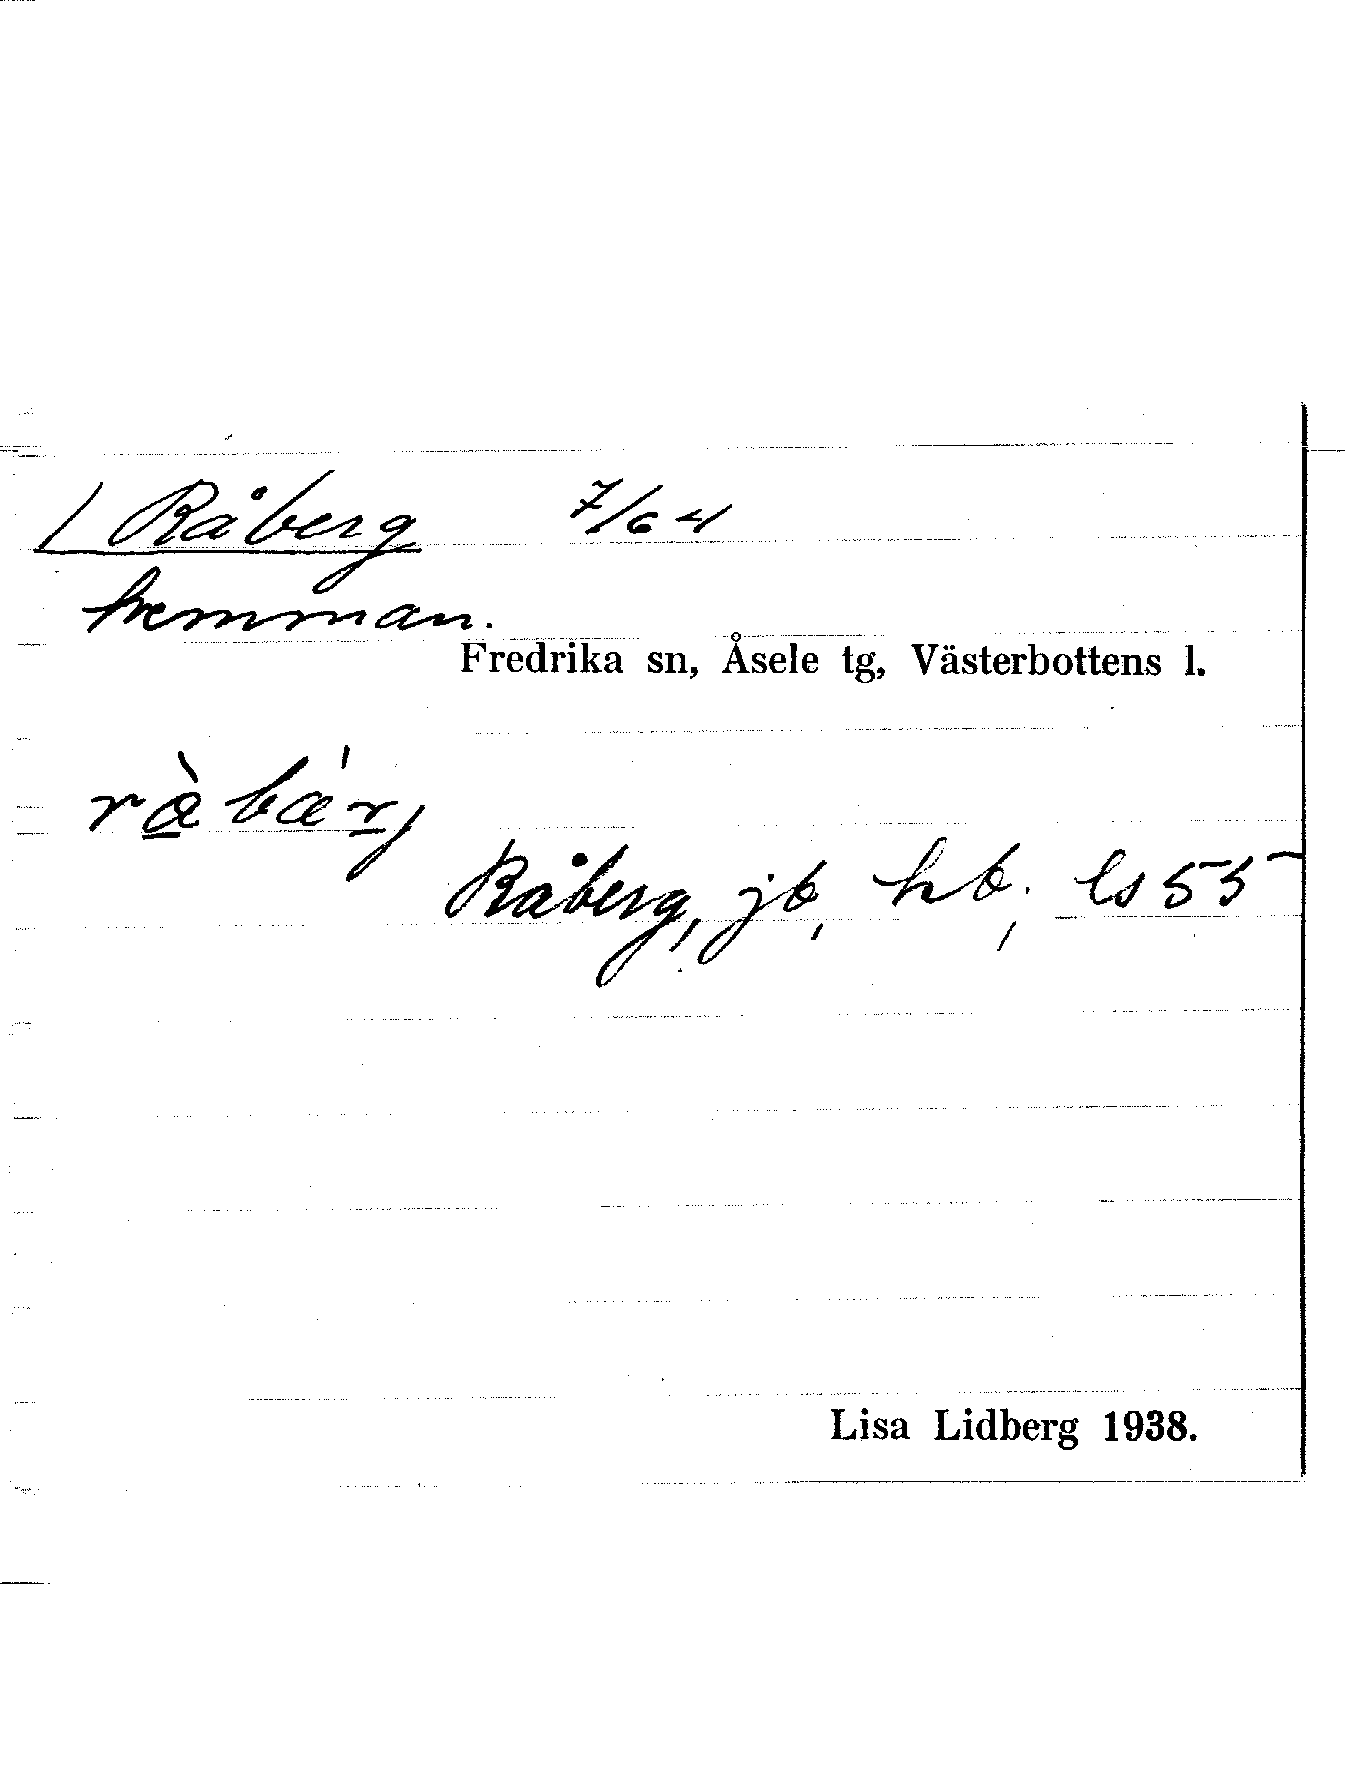 / Råberg 7/64
hemman.
Fredrika sn, Åsele tg, Västerbottens l.
ràbæ'rj
Råberg, jb, hb; ls 55
Lisa Lidberg 1938.